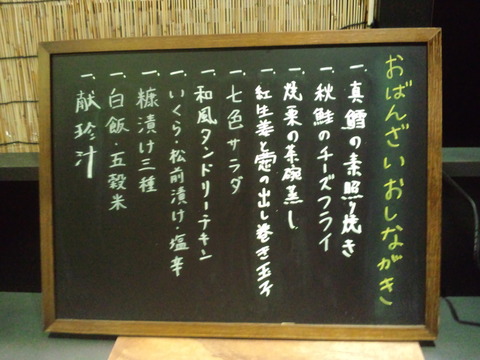 おばんざいおしながき
一、真鱈の素照り焼き
一、秋鮭のチーズフライ
一、焼栗の茶碗蒸し
一、紅生姜と葱の出し巻き玉子
一、七色サラダ
一、和風タンドリーチキン
一、いくら・松前漬け・塩辛
一、糠漬け三種
一、白飯・五穀米
一、献珍汁